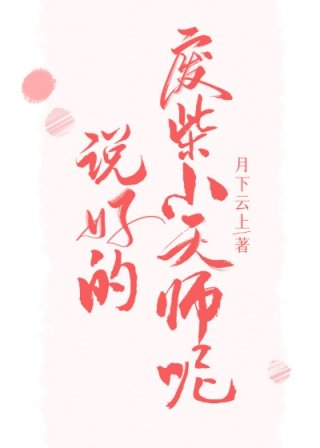 说好的
废柴小天师呢
月下云上/著